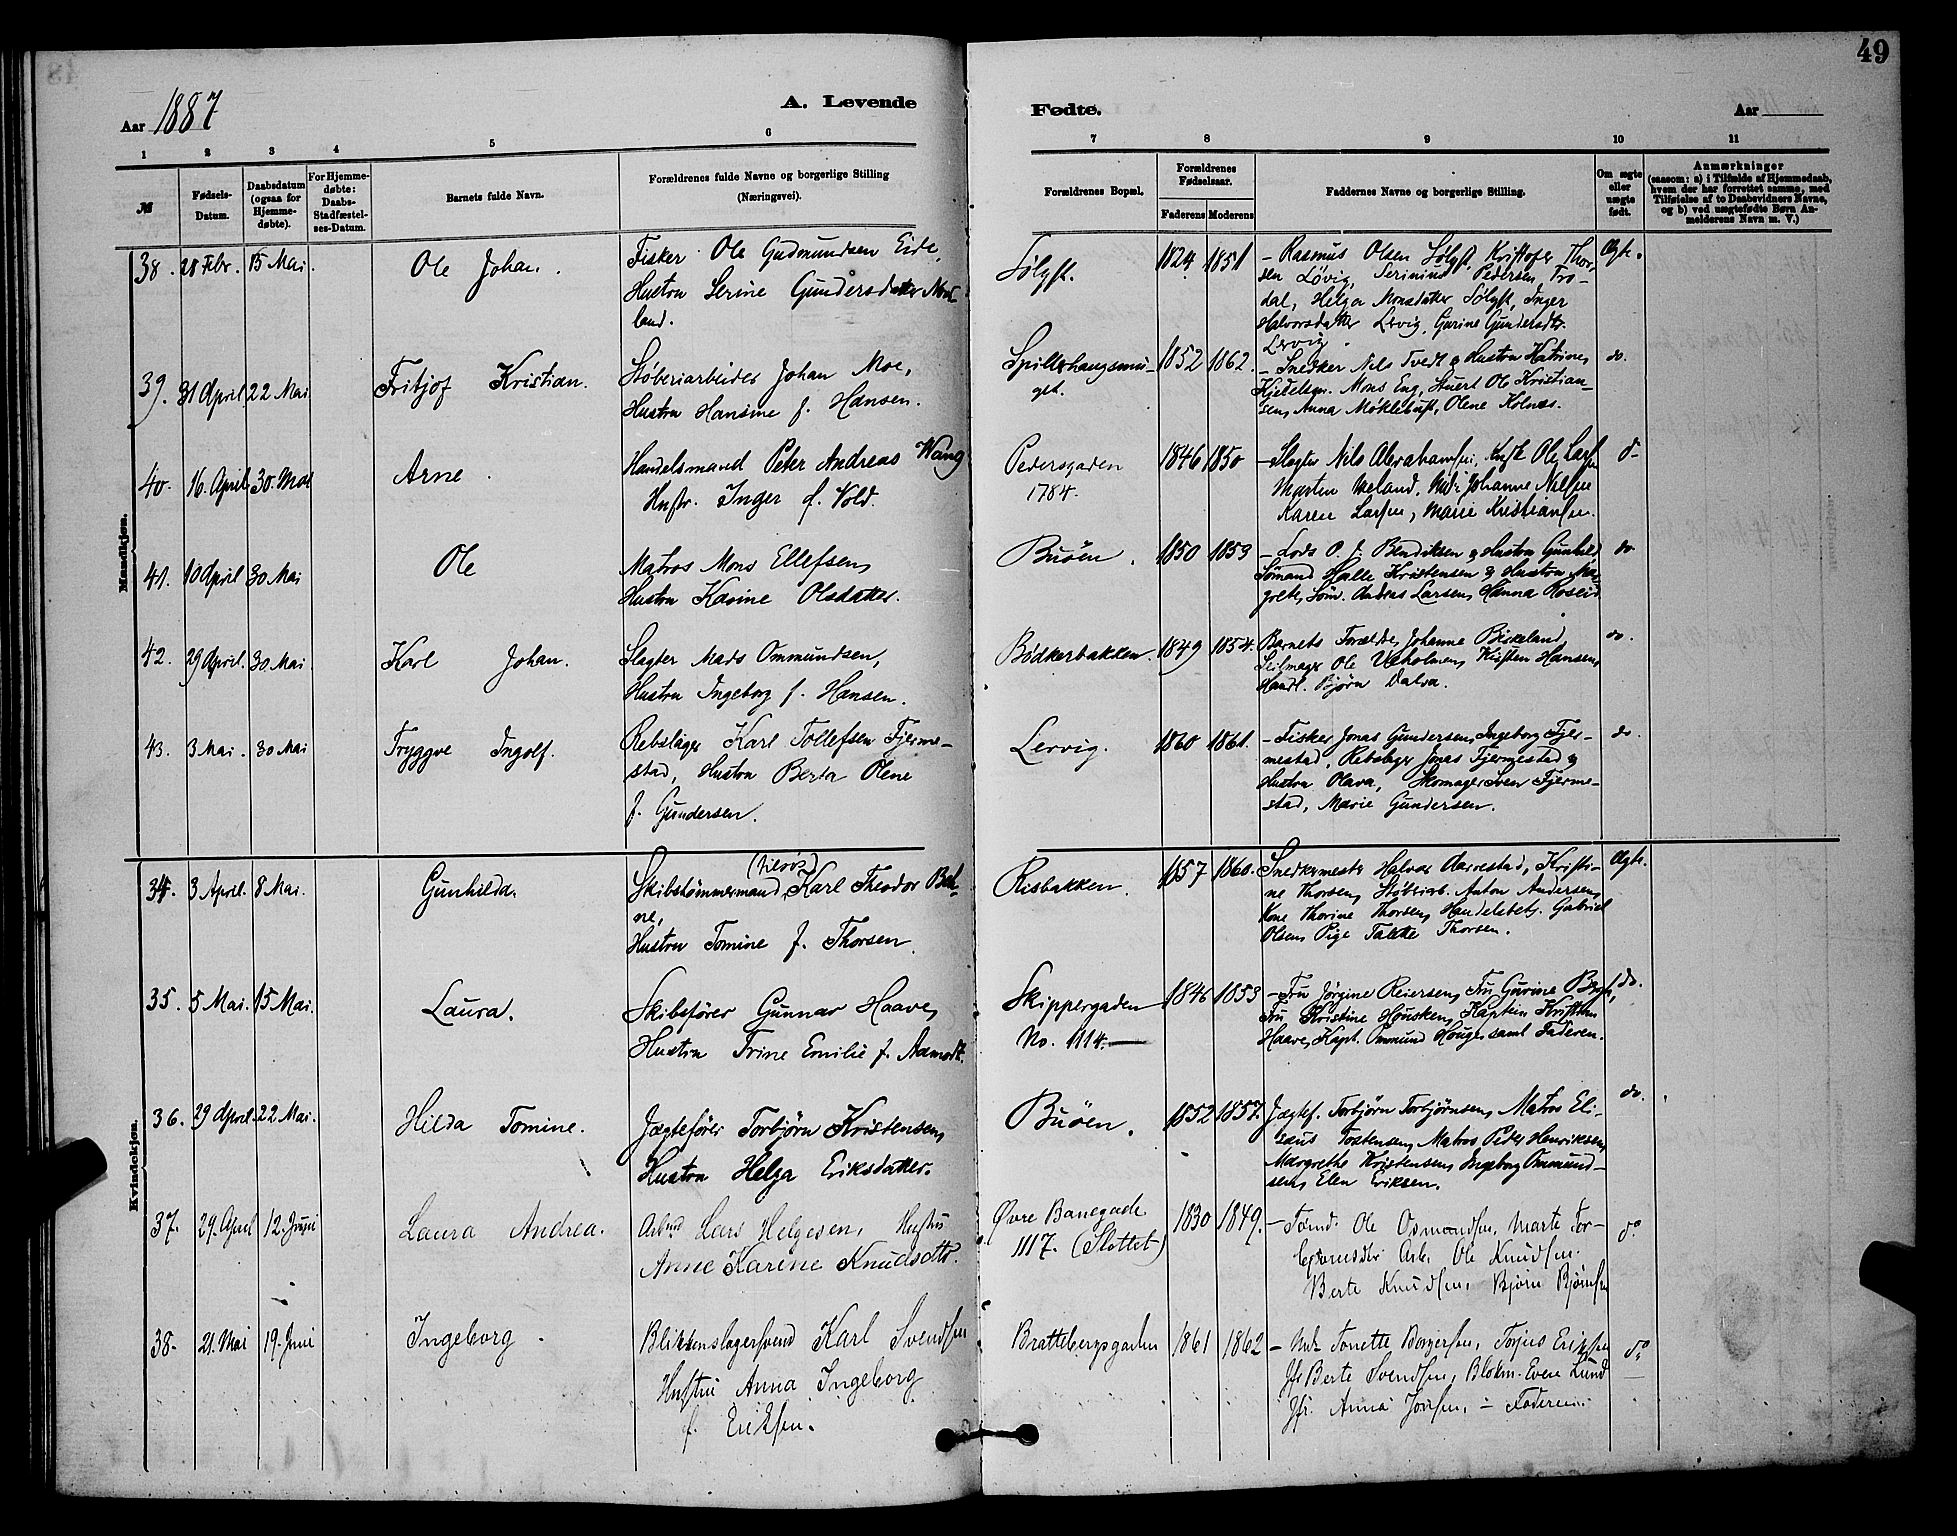 49
Aar 1887
A. Levende
Fødte.
Aar
1 2 3 4 5 6 7 8 9 10 11
№
Fødsels-
Datum.
Daabsdatum
(ogsaa for
Hjemme-
døbte).
For Hjemme-
døbte:
Daabs-
Stadfæstel-
ses-Datum.
Barnets fulde Navn.
Forældrenes fulde Navne og borgerlige Stilling
(Næringsvei).
Forældrenes Bopæl.
Forældrenes
Fødselsaar.
Faderens Moderens
Faddernes Navne og borgerlige Stilling.
Om ægte
eller
uægte
født.
Anmærkninger
(saasom: a) i Tilfælde af Hjemmedaab,
hvem der har forrettet samme, med
Tilføielse af to Daabsvidners Navne,
og b) ved uægtefødte Børn An-
melderens Navn m. V.)
Mandkjøn.
38. 28 Febr. 15 Mai.
Ole Johan.
Fisker Ole Gudmundsen Eide,
Hustru Serine Gundersdatter
land.
Sølyst.
1824 1851
- Rasmus Olsen Sølyst, Kristofer Thor-
sen Løvig, Pedersen Tro-
dal, Helga Monsdatter Sølyst, Inger
Halvorsdatter Lervig, Gurine Gundersdtr.
Lervig.
Ægte.
39. 31 April 22 Mai
Fritjof Kristian.
Støberiarbeider Johan Moe,
Hustru Hansine f. Hansen.
Spilderhaugsmu-
get.
1852 1862.
- Snedker Nils Tvedt & Hustru Katrine,
Mons Eng, Stuert Ole Kristian-
sen, Anna Møklebust, Olene Kolnes.
do.
40. 16. April 30. Mai
Arne.
Handelsmand Peter Andreas Wang
Hustr. Inger f. Vold.
Pedersgaden
1784.
1846 1850
- Slagter Nils Abrahamsen, Ole Larsen
Martin Meland, Johanne Nilsen
Karen Larsen, Marie Kristiansen.
do
41. 10 April 30 Mai
Ole
Matros Mons Ellefsen,
Hustru Karine Olsdatter.
Buøen.
1850 1853
- Lods O. J. Bendiksen & Hustru Gunhild
Sømand Halle Kristensen & Hustru Mar-
grete, Søm. Anders Larsen, Hanna Roseid
do
42. 29 April. 30 Mai
Karl Johan.
Slagter Mads Ommundsen,
Hustru Ingeborg f. Hansen.
Bødkerbakken.
1849 1854.
Barnets Forældre, Johanne Birkeland,
Seilmager Ole Vasholmen, Kirsten Hansen,
Handl. Bjørn Dalva.
do.
43. 3 Mai. 30 Mai
Tryggve Ingolf.
Rebslager Karl Tollefsen Fjerme-
stad, Hustru Berta Olene
f. Gundersen.
Lervig.
1860 1861.
- Fisker Jonas Gundersen, Ingeborg Fjer-
mestad, Rebslager Jonas Fjermestad &
Hustru Olava, Skomager Sven Fjerme-
stad, Marie Gundersen.
do.
Kvindekjøn.
34. 3 April. 8 Mai.
Gunhilda.
(tilsøs)
Skibstømmermand, Karl Theodor
ne,
Hustru Tomine f. Thorsen.
Risbakken.
1857 1860.
Snedkermester Halvor Aarrestad, Kristi-
ne Thorsen, Støberiarb. Anton Andersen,
Kone Thorine Thorsen, Handelsbetj. Gabriel
Olsen, Pige Talette Thorsen.
Ægte.
35. 5 Mai. 15 Mai.
Laura.
Skibsfører Gunnar Haave,
Hustru Trine Emilie f. Aamodt.
Skippergaden
No. 1114.
1846 1853
- Fru Jørgine Reiersen, Fru Gurine
Fru Kristine Housken, Kaptein Kristian
Haave, Kapt. Ommund Houge samt Faderen.
do.
36. 29 April. 22 Mai.
Hilda Tomine.
Jægtefører Torbjørn Kristensen,
Hustru Helga Eriksdatter.
Buøen.
1852 1857.
Jægtef. Torbjørn Torbjørnsen, Matros Eli-
sæus Tostensen, Matros Peder Henriksen,
Margrethe Kristensen, Ingeborg Ommund-
sen, Elen Eriksen.
do.
37. 29. April 12. Juni
Laura Andrea.
Arbmd Lars Helgesen, Hustru
Anne Karine Knudsdtr.
Øvre Banegade
1117. (Slottet)
1830 1849.
- Tømd. Ole Osmundsen, Marte Tor-
Arb. Ole Knudsen.
Berte Knudsen, Bjørn Bjørnsen
do
38. 21. Mai 19. Juni
Ingeborg.
Blikkenslagersvend Karl Svendsen
Hustru Anna Ingeborg
f. Eriksen.
Brattebergsgaden
1861 1862
- Tonette Borgersen, Torjus Eriksen
Jfr Berte Svendsen, Blokm. Even Lund
Jfr. Anna Jonsen, - Faderen.
do